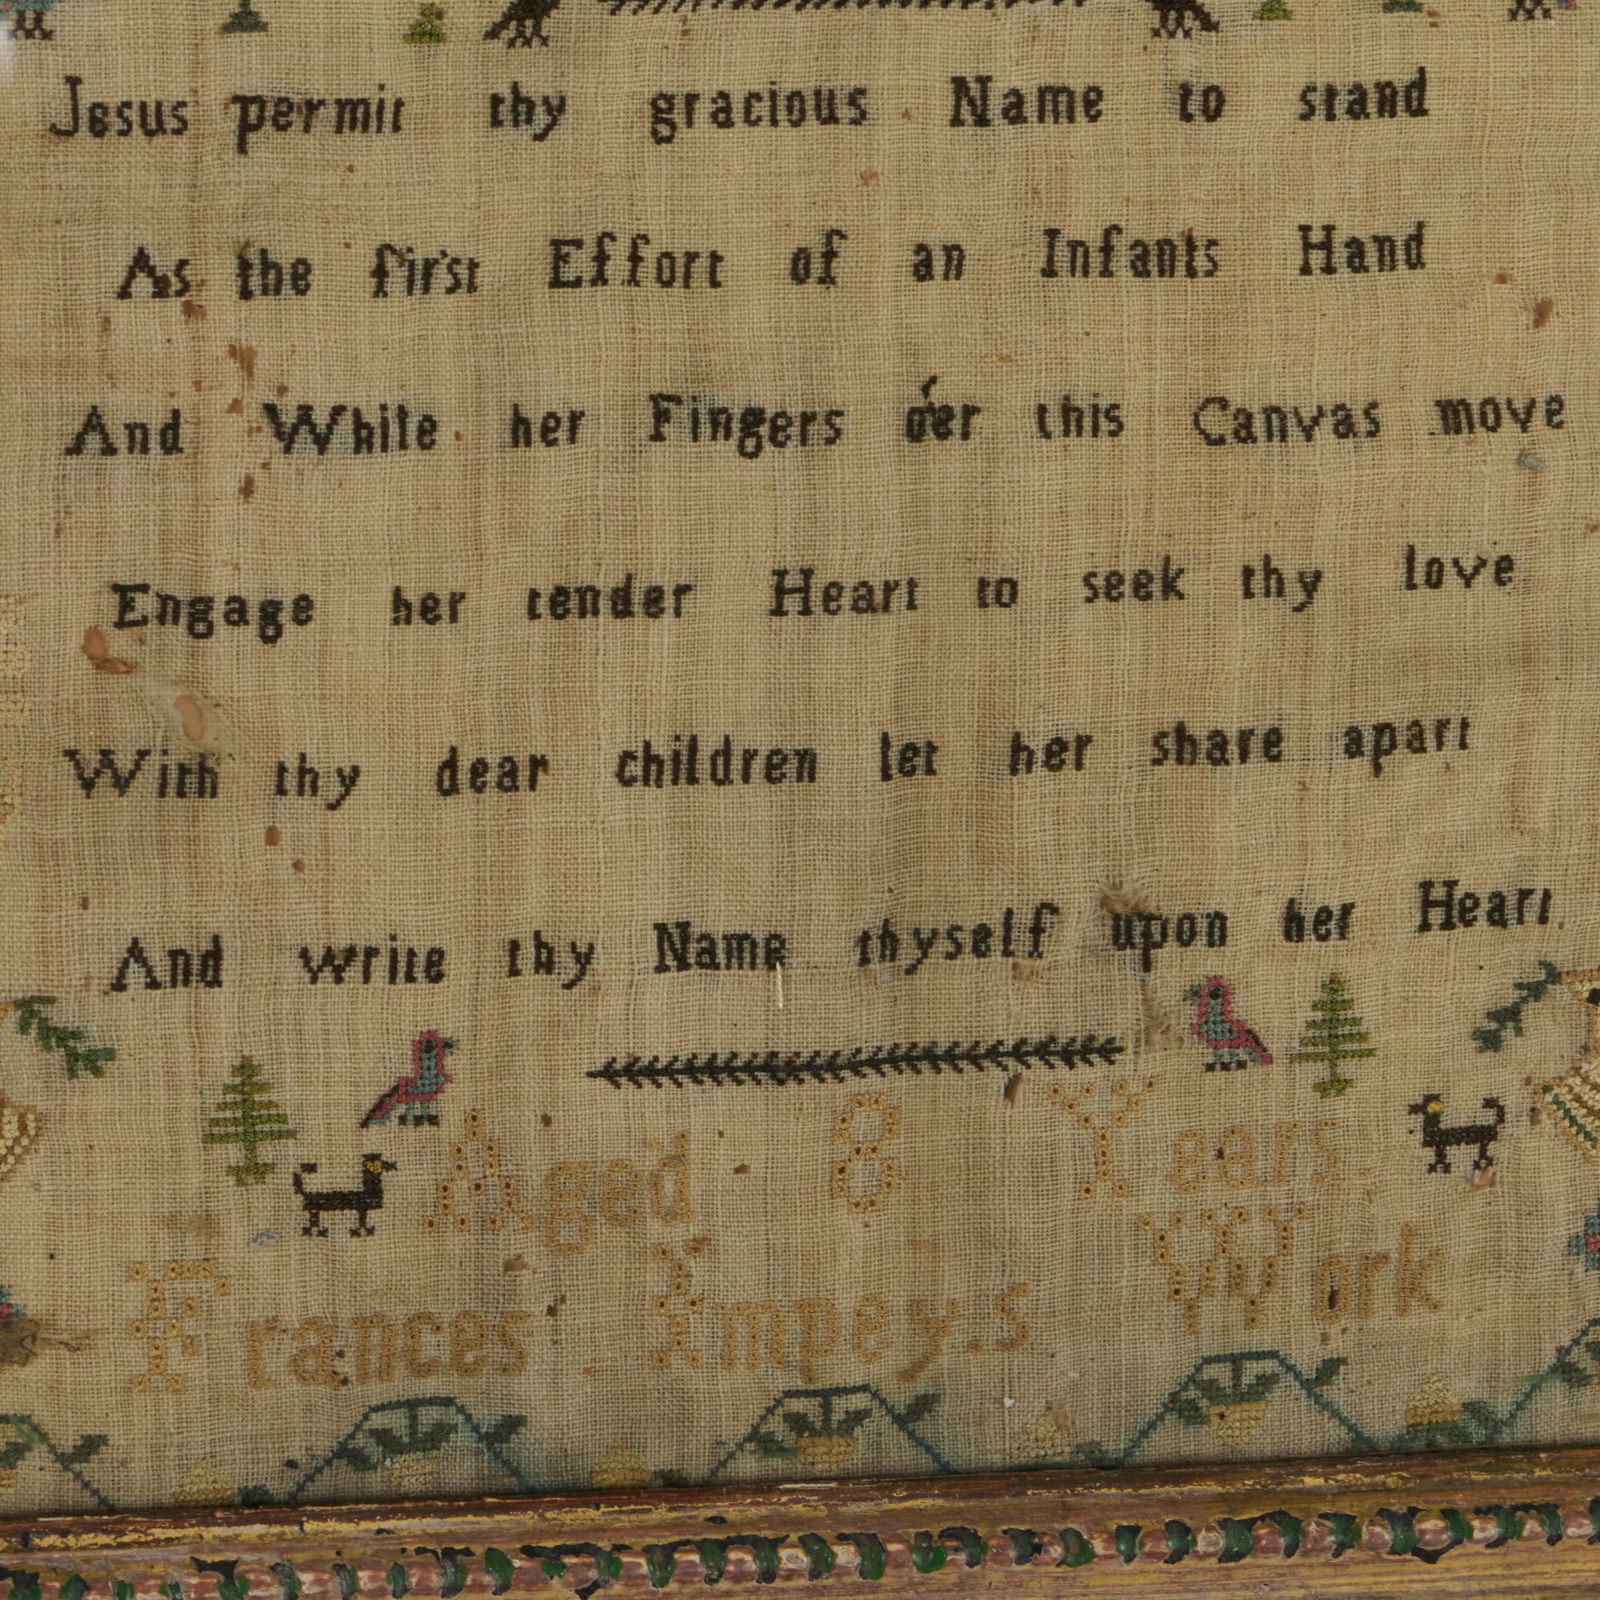 Jesus permit thy gracious Name to stand
As the first Effort of an Infants Hand
And While her Fingers o'er this Canvas move
Engage her tender Heart to seek thy love
With thy dear children let her share apart
And write thy Name thyself upon her Heart
Aged 8 Years
Frances Impeys Work